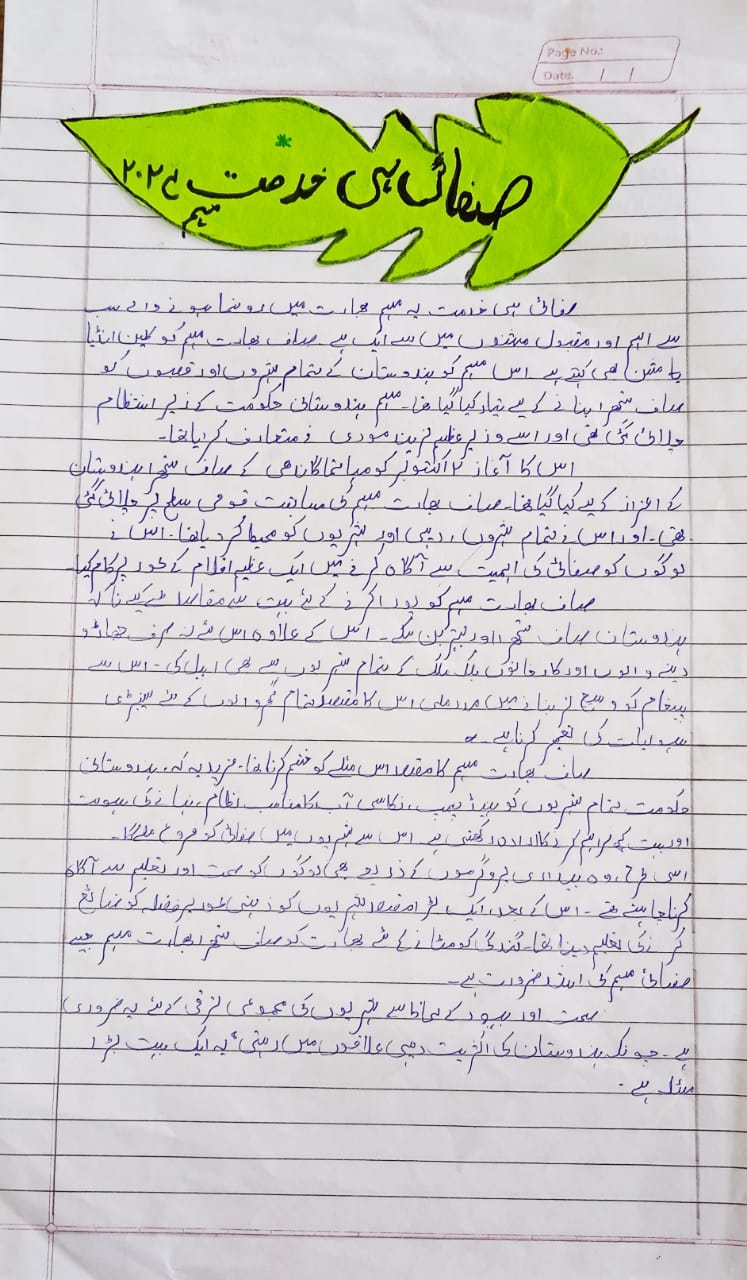 Page No.:
Date. / /
صفائی ہی خدمت ۲۰۲۴
مہم
صفائی ہی خدمت یہ مہم بھارت میں رونما ہونے والے سب
سے اہم اور مقبول مشنوں میں سے ایک ہے۔ صاف بھارت مہم کو کلین انڈیا
یا مشن بھی کہتے ہے اس مہم کو ہندوستان کے تمام شہروں اور قصبوں کو
صاف ستھرا بنانے کے لیے تیار کیا گیا تھا۔ مہم ہندوستانی حکومت کے زیر انتظام
چلائی گئی تھی اور اسے وزیر عظیم نریندر مودی نے متعارف کرایا تھا۔
اس کا آغاز ۲ اکتوبر کو مہاتما گاندھی کے صاف ستھرا ہندوستان
کے اعزاز کے لیے کیا گیا تھا۔ صاف بھارت مہم کی قومی سطح پر چلائی گئی
تھی۔ اور اس نے تمام شہروں، دیہی اور شہریوں کو محیط کر دیا تھا۔ اس نے
لوگوں کو صفائی کی اہمیت سے آگاہ کرنے میں ایک عظیم اقدام کے طور پر کام کیا۔
صاف بھارت مہم کو پورا کرنے کے لئے بہت سے مقاصد طے کیے تاکہ
ہندوستان صاف ستھرا اور بہتر بن سکے۔ اس کے علاوہ اس نے نہ صرف جھاڑو
دینے والوں اور کارخانوں بلکہ ملک کے تمام شہریوں سے بھی اپیل کی۔ اس سے
پیغام کو وسیع تر بنانے میں مدد ملی اس کا مقصد تمام گھر والوں کے لئے سینٹری
سہولیات کی تعمیر کرنا ہے۔
صاف بھارت مہم کا مقصد اس مسئلے کو ختم کرنا تھا۔ مزید یہ کہ، ہندوستانی
حکومت تمام شہریوں کو ہینڈ پمپ، نکاسی آب کا مناسب نظام، نہانے کی سہولت
اور بہت کچھ فراہم کرنے کا ارادہ رکھتی ہے اس سے شہریوں میں صفائی کو فروغ ملے گا۔
اسی طرح، وہ بیداری پروگرموں کے ذریعے بھی لوگوں کو صحت اور تعلیم سے آگاہ
کرنا چاہتے تھے۔ اس کے بعد، ایک بڑا مقصد شہریوں کو ذہنی طور پر فضلہ کو ضائع
کرنے کی تعلیم دینا تھا۔ گندگی کو مٹانے کے لئے بھارت کو صاف ستھرا بھارت مہم جیسے
صفائی مہم کی اشد ضرورت ہے۔
صحت اور بہبود کے لحاظ سے شہریوں کی مجموعی ترقی کے لئے یہ ضروری
ہے۔ چونکہ ہندوستان کی اکثریت دیہی علاقوں میں رہتی، یہ ایک بہت بڑا
مسئلہ ہے۔